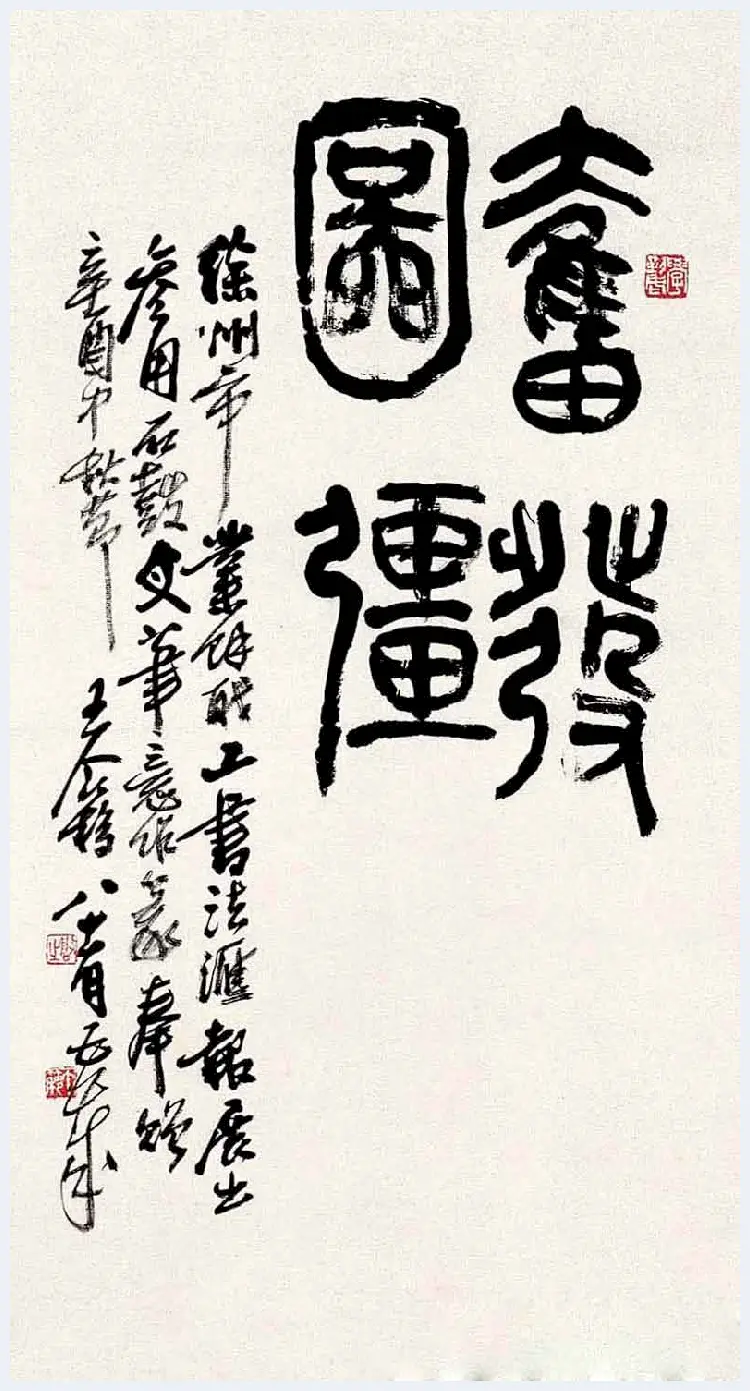 奮發
圖彊
徐州市業餘職工書法滙報展出
參用石鼓文筆意作篆奉贈
辛酉中秋節 王个簃 八十有五